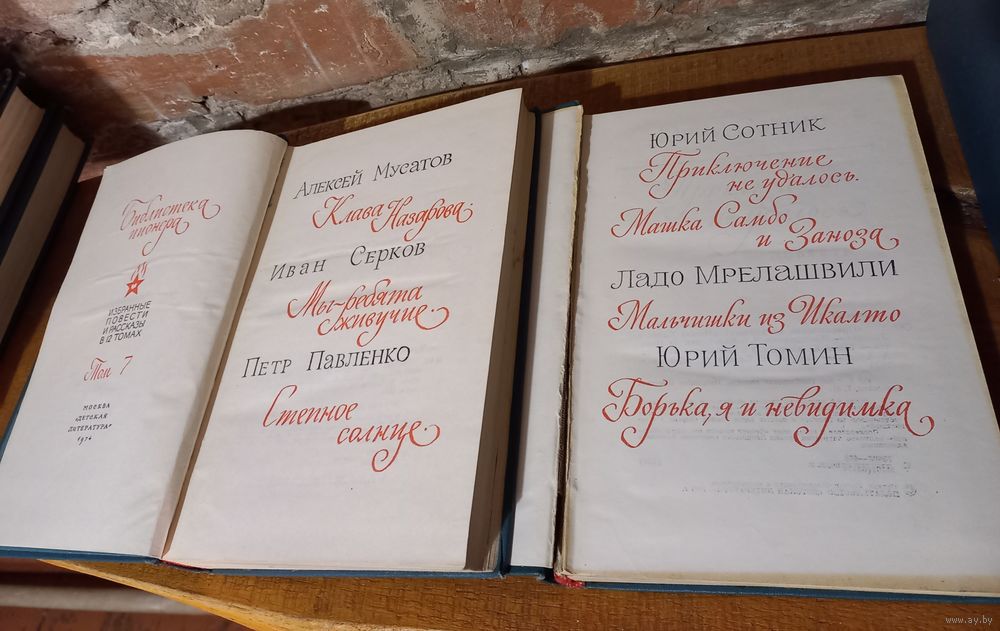 Библиотека
пионера
ИЗБРАННЫЕ
ПОВЕСТИ
И РАССКАЗЫ
В 12 ТОМАХ
Том 7
МОСКВА
«ДЕТСКАЯ
ЛИТЕРАТУРА»
1974
Алексей Мусатов
Клава Назарова.
Иван Серков
Мы-ребята
живучие.
Петр Павленко
Степное
солнце.
Юрий Сотник
Приключение
не удалось.
Машка Самбо
и Заноза
Ладо Мрелашвили
Мальчишки из Икалто
Юрий Томин
Борька, я и невидимка
www.ay.by